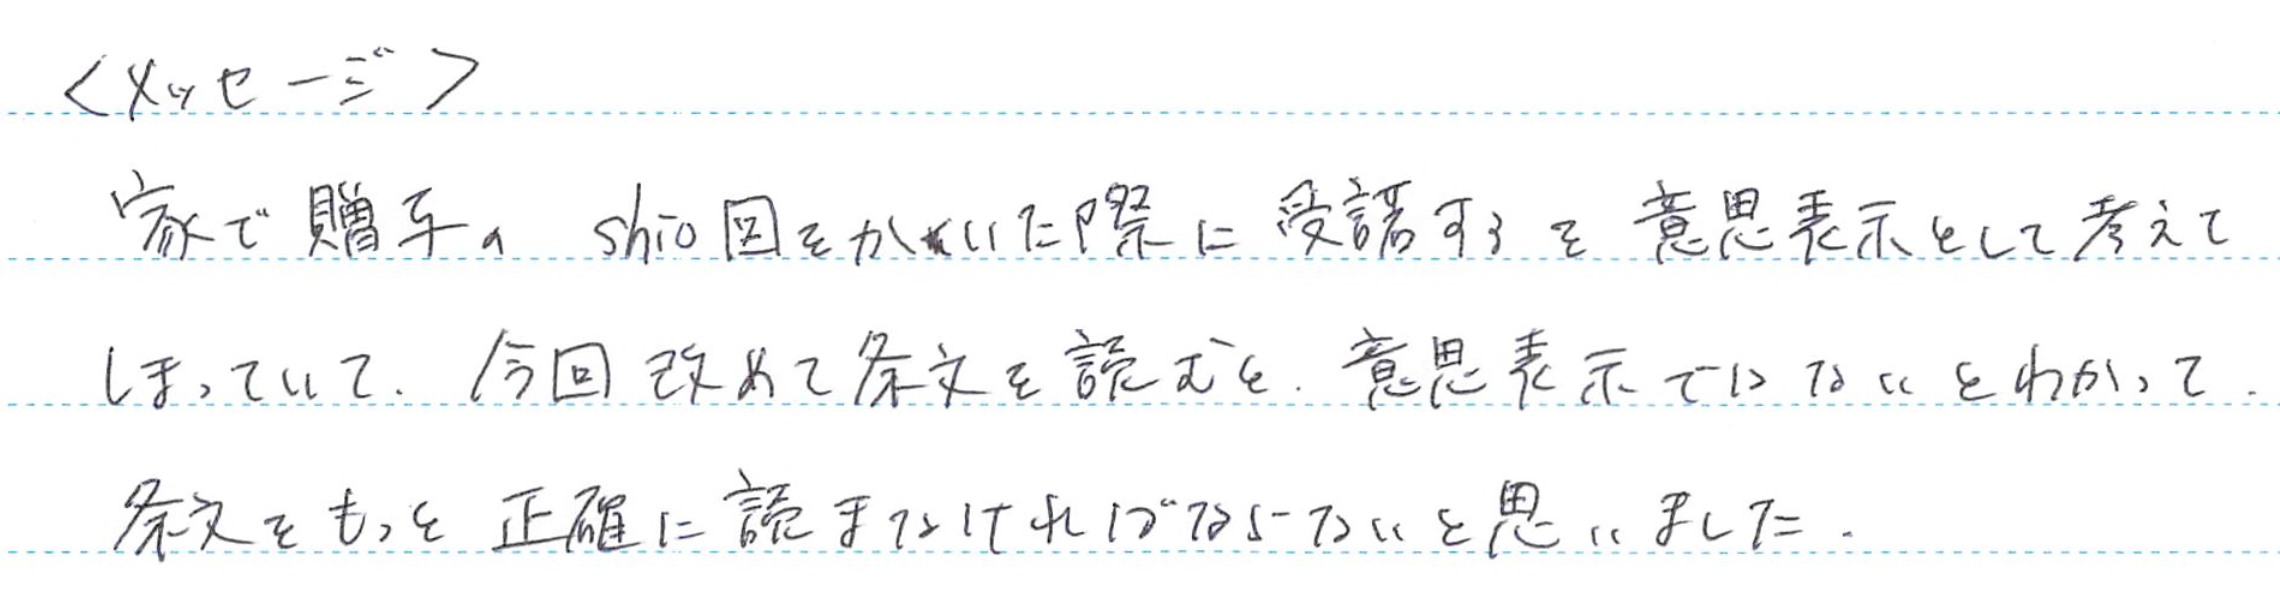 <メッセージ>
家で贈与の shio図をかいた際に受諾するを意思表示として考えて
しまっていて、今回改めて条文を読むと、意思表示ではないとわかって、
条文をもっと正確に読まなければならないと思いました。